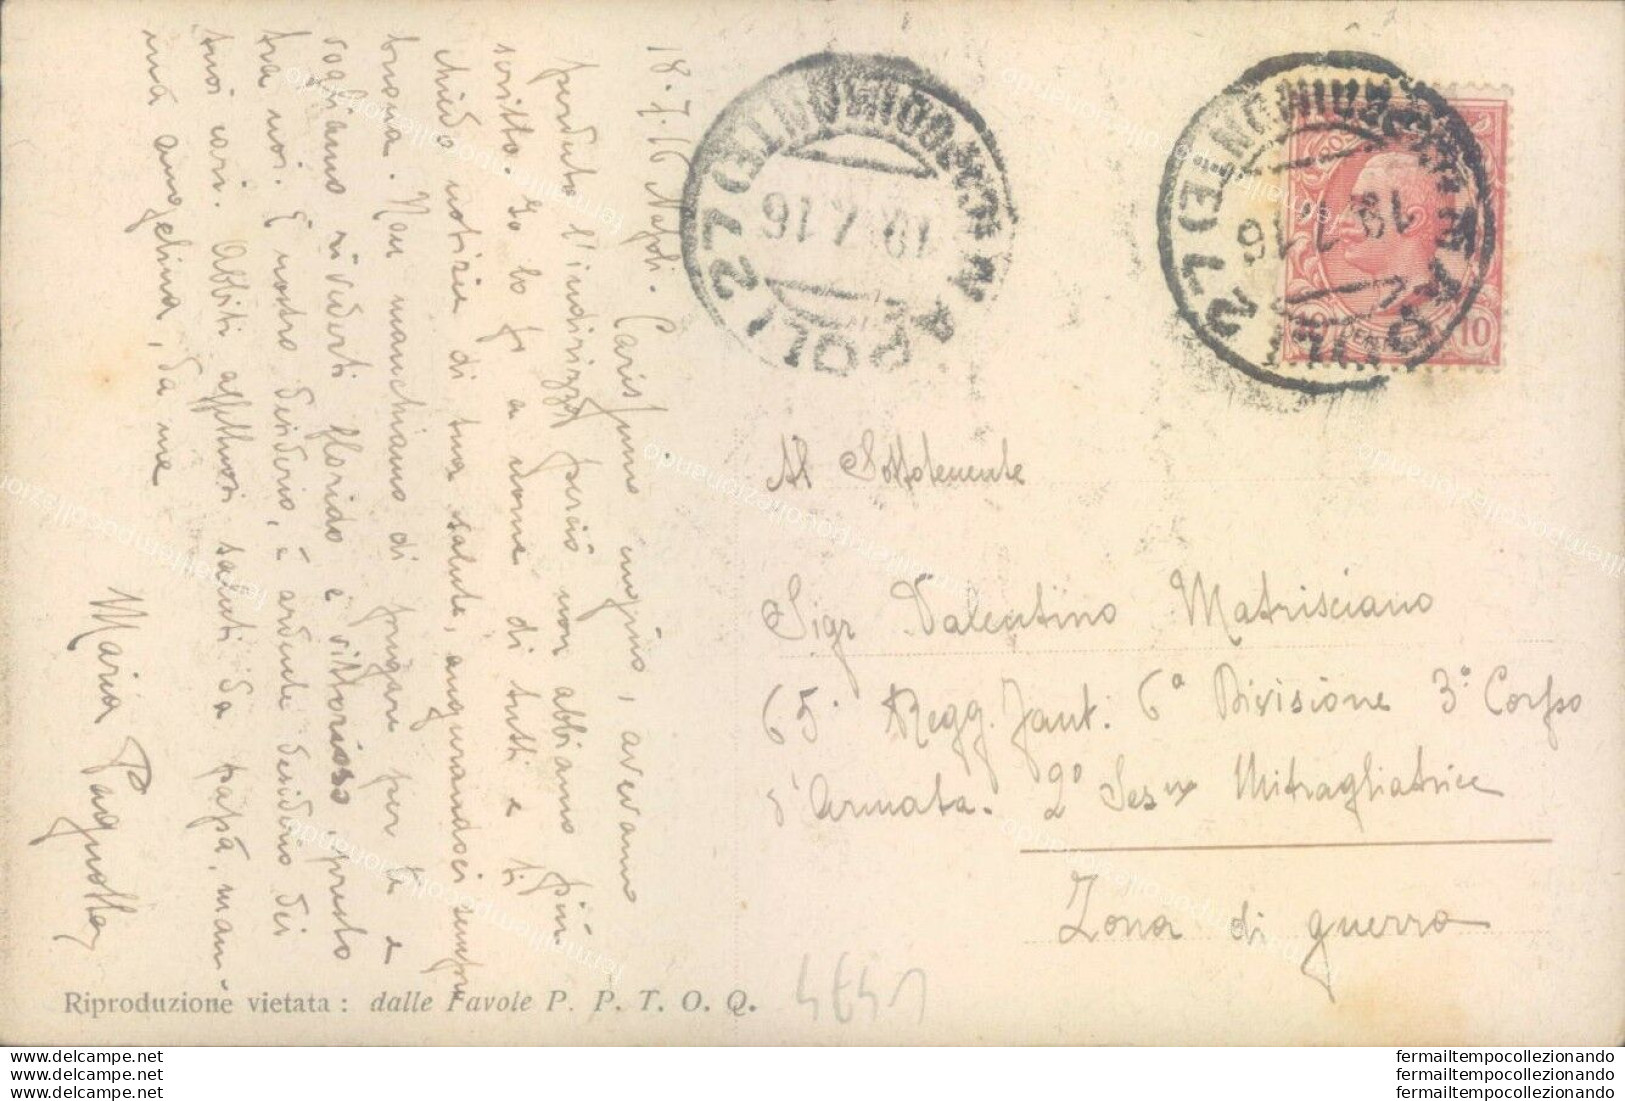 18.7.16 Napoli. Carissimo cugino, avevamo
perduto l'indirizzo perciò non abbiamo più
scritto. Io lo fo a nome di tutti e ti
chiedo notizie di tua salute, augurandoci sempre
buona. Non manchiamo di pregare per te e
vogliamo rivederti florido e vittorioso presto
tra noi. È nostro desiderio, è ardente desiderio dei
tuoi cari. Abbiti affettuosi saluti da papà, mam-
mà angelina, da me
Maria Pagnotta
NAPOLI 27
19.7.16
NAPOLI 27
19.7.16
10
10
Al Sottotenente
Sigr Valentino Matrisciano
65° Regg. Fant. 6a Divisione 3° Corpo
d'Armata. 2° Sesne Mitragliatrice
Zona di guerra
4641
Riproduzione vietata: dalle Favole P. P. T. O. Q.
www.delcampe.net
www.delcampe.net
www.delcampe.net
fermailtempocollezionando
fermailtempocollezionando
fermailtempocollezionando